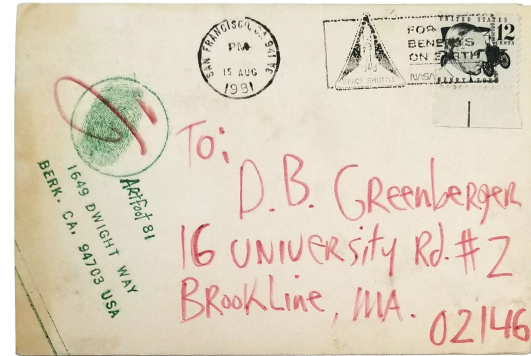 SAN FRANCISCO, CA 941
PM
15 AUG
1981
SPACE SHUTTLE
FOR
BENEFITS
ON EARTH
NASA
UNITED STATES
12
CENTS
HENRY FORD
ARTFOOT 81
1649 DWIGHT WAY
BERK. CA. 94703 USA
To:
D.B. Greenberger
16 UNIVERSITY Rd. # 2
BROOKLine, MA.
02146